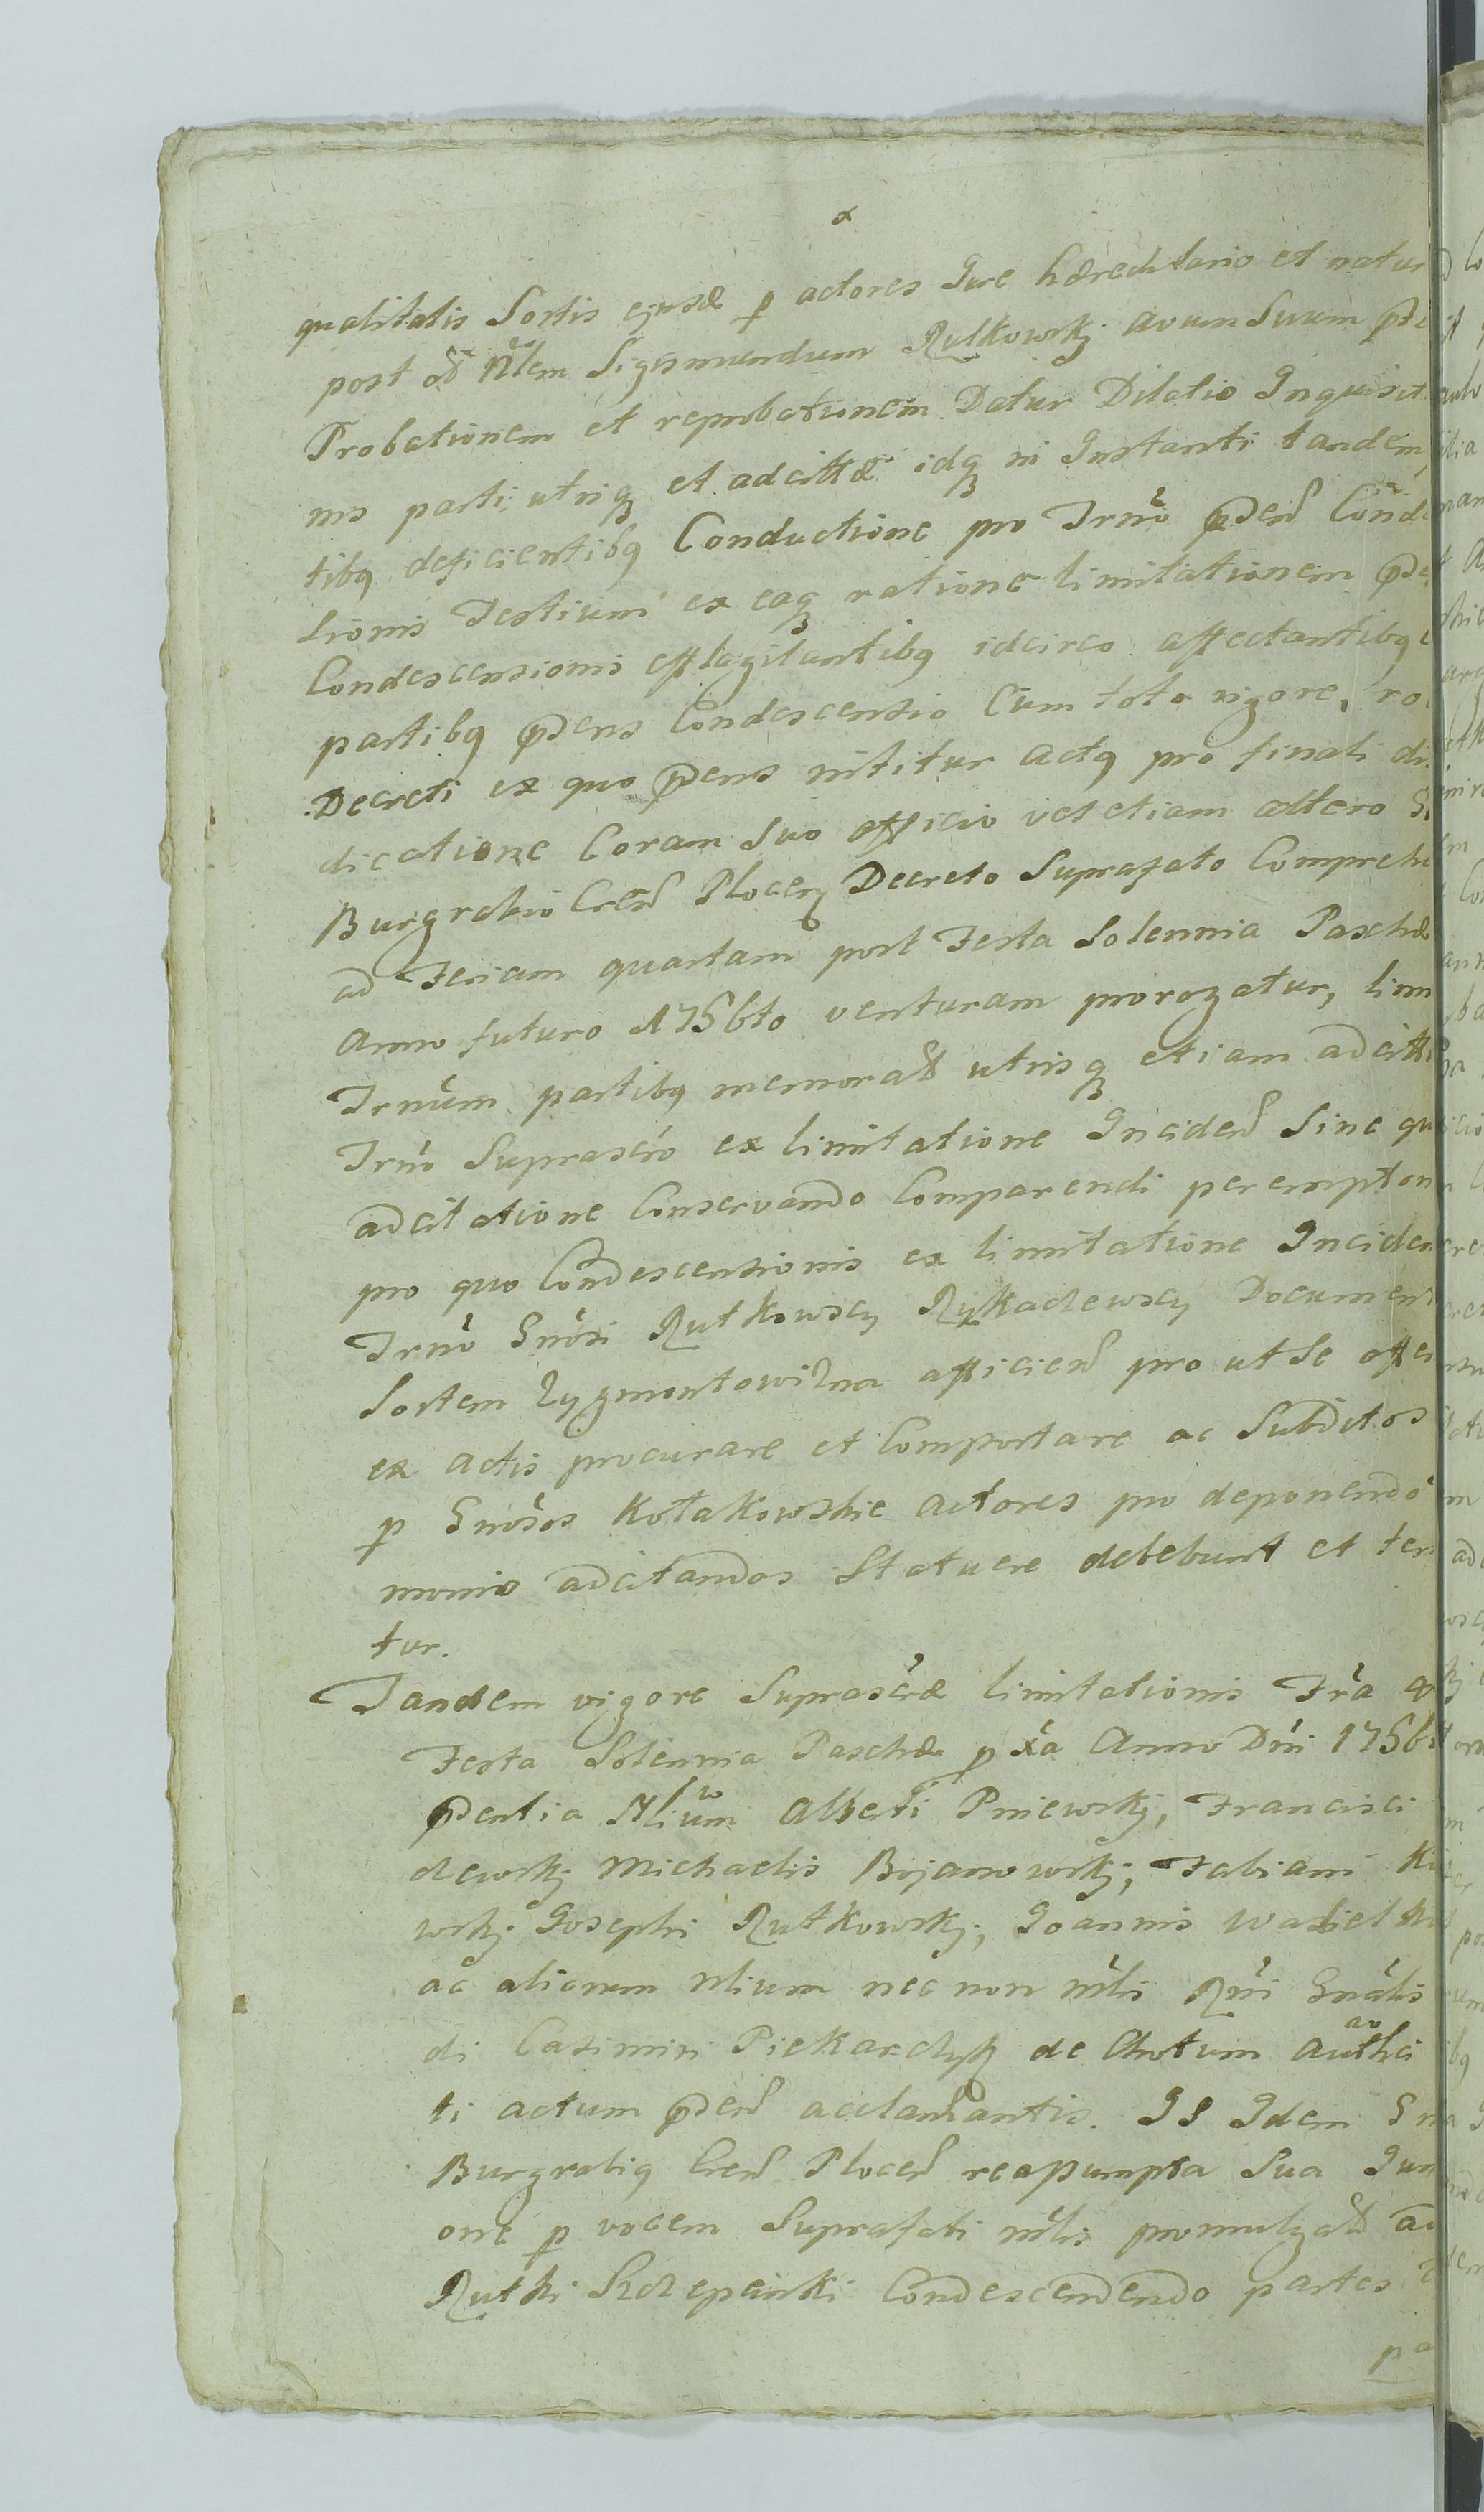 qualitatis Sortis ejusd p actores Jure hæreditario et natur
post od Nlem Sigismundum Rutkowskj avum Suum pde
Probationem et reprobationem Datur Dilatio Inquisit
nis parti utriq et adcittæ idq in Instanti tandem,
tibq deficientibq Conductione pro Trno pden Conde
sionis Testium ex eaq ratione limitationem pde
Condescensionis efflagitantibq idcirco affectantibq
partibq pdens Condescensio Cum toto rigore, ro
Decreti ex quo pdens nititur actq pro finali di
dicatione Coram Suo officio vel etiam altero G
Burgrabio Cren Plocen Decreto Suprafato Comprehe
ad Feriam quartam post Festa Solennia Paschæ
Anno futuro 1756to venturam prorogatur, lim
Trnum partibq memorat utrisq etiam adcitt
Trno Suprascro ex limitatione Inciden Sine qu
adcitatione Conservando Comparendi peremptori
pro quo Condescensionis ex limitatione Inciden
Trno Gnosi Rutkowscy Rykaclewscy Documen
Sortem Zygmontowizna afficien pro ut Se offer
ex actis procurare et Comportare ac Subditos
p Gnosos Kołakowskie actores pro deponendo
monio adcitandos Statuere debebunt et ten
tur.
Tandem vigore Suprascræ limitationis Fra 4
Festa Solennia Paschæ p xa Anno Dni 1756
pdentia Nlium Alberti Pniewskj, Francisci
dewskj Michaelis Bojanowskj, Fabiani Ki
wskj Josephi Rutkowskj, Joannis Wasielk
ac aliorum Nlium nec non mlis Rni Gnalis
di Casimiri Piekarchyk de Chotum Authci
ti actum pden acclamantis. IS Idem Gn
Burgrabiq Cren Plocen reassumpta Sua Jun
one p vocem Suprafati mlis promulgat ad
Rutki Szczepanki Condescendendo partes
pa